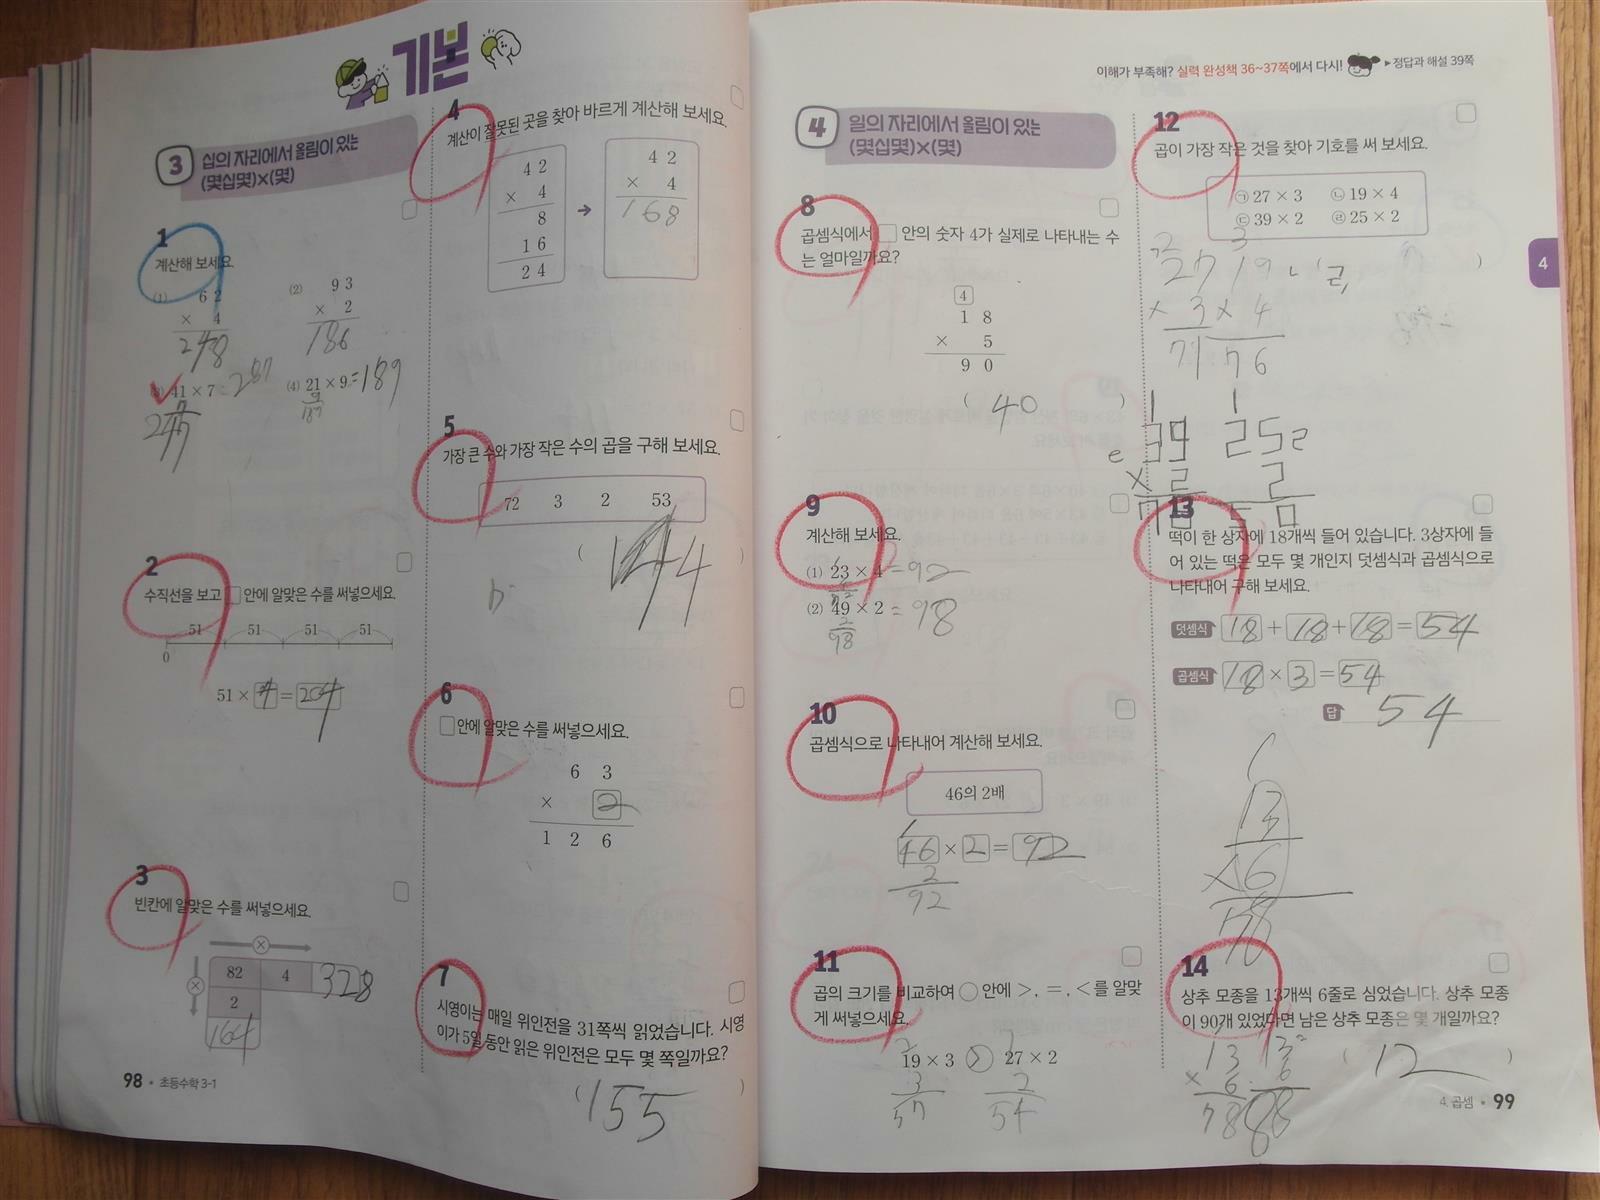 기본
3 십의 자리에서 올림이 있는
(몇십몇)×(몇)
1
계산해 보세요.
(1) 62
× 4
248
(2) 93
× 2
186
(3) 41 × 7 = 287
(4) 21 × 9 = 189
9
189
2
수직선을 보고 □ 안에 알맞은 수를 써넣으세요.
51 51 51 51
0
51 × 4 = 204
3
빈칸에 알맞은 수를 써넣으세요.
82 4 328
2
164
98 • 초등수학 3-1
4
계산이 잘못된 곳을 찾아 바르게 계산해 보세요.
4 2
× 4
8
1 6
2 4
→
4 2
× 4
168
5
가장 큰 수와 가장 작은 수의 곱을 구해 보세요.
72 3 2 53
( 144 )
6
□ 안에 알맞은 수를 써넣으세요.
6 3
× 2
1 2 6
7
시영이는 매일 위인전을 31쪽씩 읽었습니다. 시영
이가 5일 동안 읽은 위인전은 모두 몇 쪽일까요?
( 155 )
이해가 부족해? 실력 완성책 36~37쪽에서 다시! ▶정답과 해설 39쪽
4 일의 자리에서 올림이 있는
(몇십몇)×(몇)
8
곱셈식에서 □ 안의 숫자 4가 실제로 나타내는 수
는 얼마일까요?
4
1 8
× 5
9 0
( 40 )
9
계산해 보세요.
(1) 23 × 4 = 92
(2) 49 × 2 = 98
2
98
10
곱셈식으로 나타내어 계산해 보세요.
46의 2배
46 × 2 = 92
2
92
11
곱의 크기를 비교하여 ○ 안에 >, =, <를 알맞
게 써넣으세요.
19 × 3 > 27 × 2
3 2
57 54
12
곱이 가장 작은 것을 찾아 기호를 써 보세요.
㉠ 27 × 3 ㉡ 19 × 4
㉢ 39 × 2 ㉣ 25 × 2
2 3
27 19
× 3 × 4
71 76
1 1
39 25
× 2 2
78 50
13
떡이 한 상자에 18개씩 들어 있습니다. 3상자에 들
어 있는 떡은 모두 몇 개인지 덧셈식과 곱셈식으로
나타내어 구해 보세요.
덧셈식 18 + 18 + 18 = 54
곱셈식 18 × 3 = 54
답 54
1
13
×6
78
14
상추 모종을 13개씩 6줄로 심었습니다. 상추 모종
이 90개 있었다면 남은 상추 모종은 몇 개일까요?
( 12 )
13
× 6
78
4
4. 곱셈 • 99